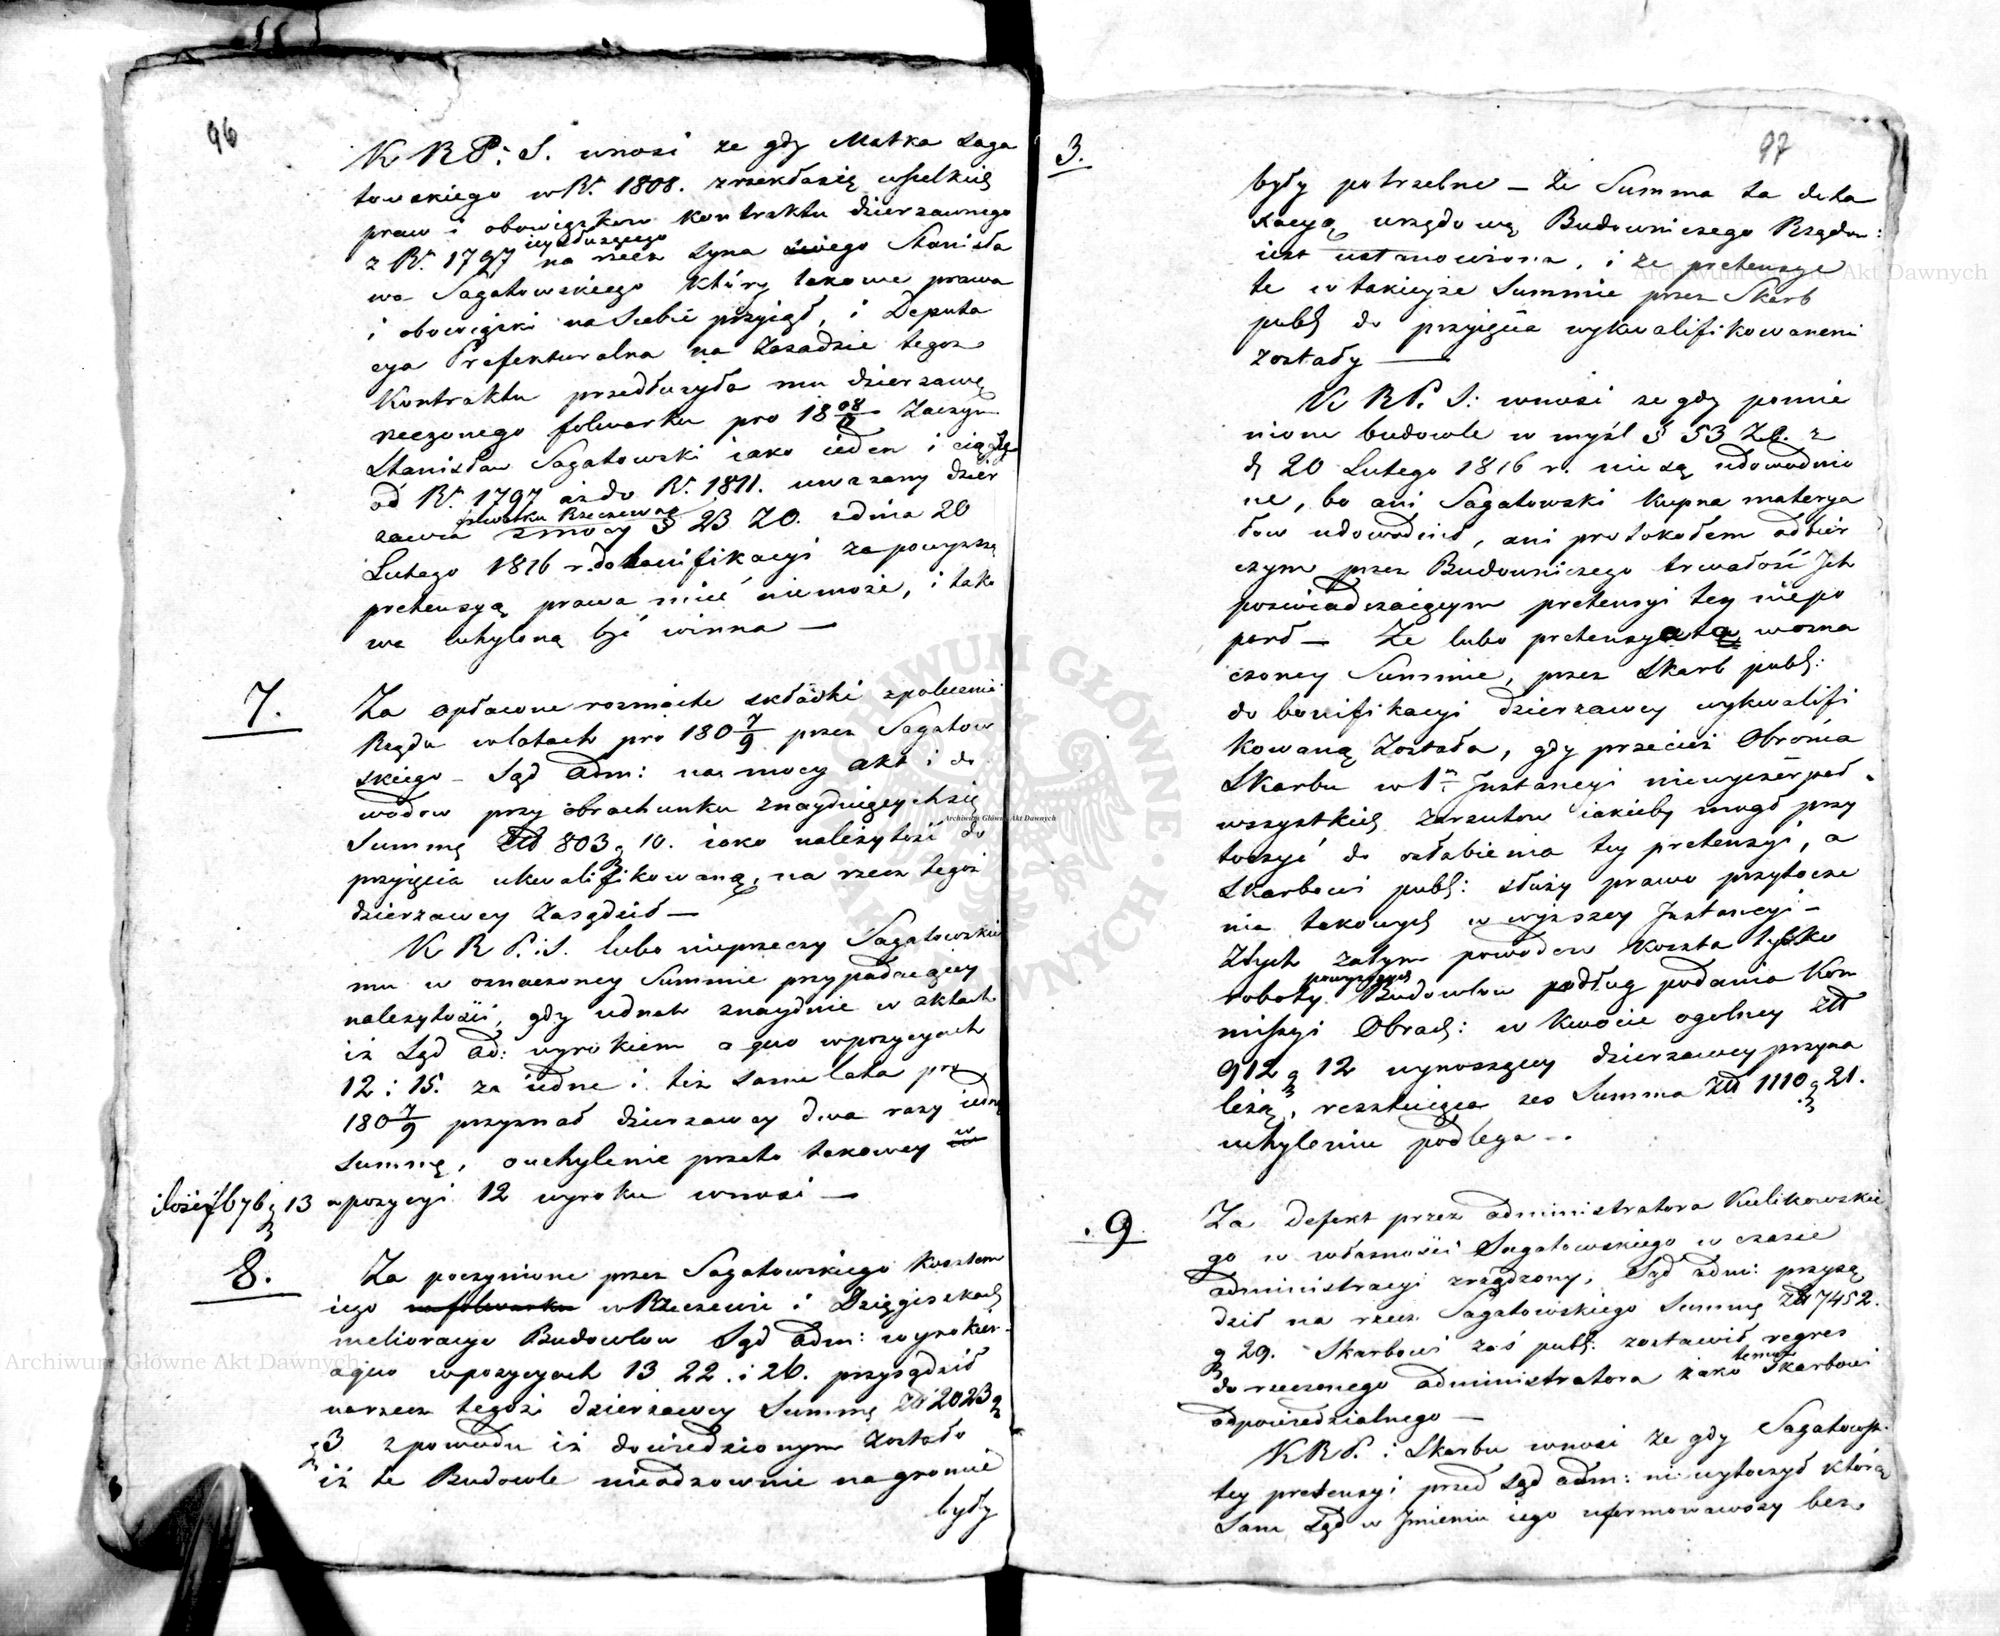 96
K R P: S. wnosi że gdy Matka Saga
towskiego w R. 1808. zrzekła się wszelkich
praw i obowiązkow kontraktu dzierzawnego
z R. 1797 iey służącego na rzecz Syna swego Stanisła
wa Sagatowskiego który takowe prawa
i obowiązki na siebie przyiął, i Deputa
cya Prefekturalna na zasadzie tegoż
Kontraktu przedłużyła mu dzierzawę
rzeczonego folwarku pro 18 08/11 Zaczym
Stanisław Sagatowski iako ieden i ciągły
od R. 1797 aż do R. 1811. uwazany dzier
zawca folwarku Rzeczewa z mocy § 23 Z O. z dnia 20
Lutego 1816 r. do bonifikacyi za powyższą
pretensyą prawa mieć nie może, i tako
wa uchyloną być winna —
7. Za opłacone rozmaite składki z polecenia
Rządu w latach pro 180 7/9 przez Sagatow
skiego — Sąd adm: na mocy akt i do
wodow przy obrachunku znayduiących się
Summę Złł 803 g 10. iako należytość do
przyięcia ukwalifikowaną, na rzecz tegoż
dzierzawcy zasądził —
K R P: S. lubo nieprzeczy Sagatowskie
mu w oznaczoney Summie przypadaiącey
należytości, gdy iednak znaydnie w aktach
iż Sąd ad: wyrokiem a quo w pozycyach
12 i 15. za iedne i też same lata pro
180 7/9 przyznał dzierzawcy dwa razy iedną
Summę, o uchylenie przeto takowey w
ilości f 676 g 13 w pozycyi 12 wyroku wnosi —
8. Za poczynione przez Sagatowskiego kosztem
iego na folwarku w Rzeczewie i Dzięgiszkach
melioracye Budowlow Sąd adm: wyrokiem
a quo w pozycyach 13 22. i 26. przysądził
na rzecz tegoż dzierzawcy Summę Złł 2023 g
3 z powodu iż dowiedzionym zostało
iż te Budowle nieodzownie na gruncie
były
3.
97
były potrzebne — Że Summa ta dcta
xacyą urzędową Budowniczego Rządow:
iest ustanowiona, i że pretensye
te w takieyże Summie przez Skarb
publ do przyięcia wykwalifikowanemi
zostały —
K R P. S: wnosi że gdy pomie
nione budowle w myśl § 53 Z O. z
d 20 Lutego 1816 r. nie są udowodnio
ne, bo ani Sagatowski kupna materya
łow udowodnił, ani protokołem odbior
czym przez Budowniczego trwałość Ich
poswiadczaiącym pretensyi tey niepo
parł — Że lubo pretensya ta w ozna
czoney Summie, przez Skarb publ:
do bonifikacyi dzierzawcy wykwalifi
kowaną została, gdy przecież Obrońca
Skarbu w 1ey Instancyi niewyczerpał
wszystkich zarzutow iakieby mogł przy
toczyć do osłabienia tey pretensyi, a
Skarbowi publ: służy prawo przytocze
nia takowych w wyższey Instancyi —
Z tych zatym powodow koszta tylko
roboty powyzszych Budowlow podług podania Kom
missyi Obrach: w kwocie ogolney złł
912 g 12 wynoszącey dzierzawcy przyna
leżą, resztuiąca zaś Summa złł 1110 g 21.
uchyleniu podlega —.
9. Za defekt przez administratora Kulikowskie
go w własności Sagatowskiego w czasie
administracyi zrządzony, Sąd adm: przysą
dził na rzecz Sagatowskiego Summę Złł 7452.
g 29. Skarbowi zaś publ: zostawił regres
do rzeczonego administratora iako temuż Skarbowi
odpowiedzialnego —
K R P. i Skarbu wnosi że gdy Sagatowsk.
tey pretensyi przed Sąd adm: niewytoczył którą
Sam Sąd w Imieniu iego uformowawszy bez